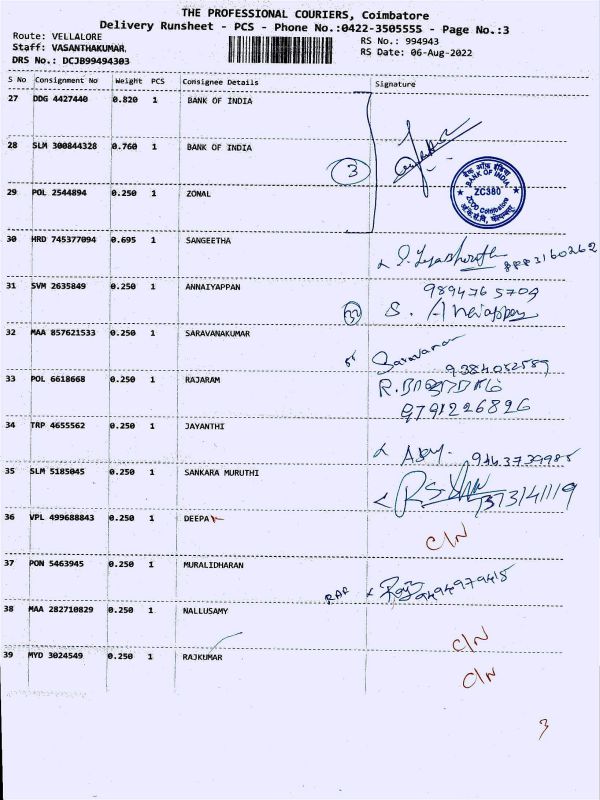 THE PROFESSIONAL COURIERS, Coimbatore
Delivery Runsheet - PCS - Phone No.:0422-3505555 - Page No.:3
Route: VELLALORE
RS No.: 994943
Staff: VASANTHAKUMAR
RS Date: 06-Aug-2022
DRS No.: DCJB99494303
S No Consignment No Weight PCS Consignee Details Signature
27 DDG 4427440 0.820 1 BANK OF INDIA
28 SLM 300844328 0.760 1 BANK OF INDIA
3
बैंक ऑफ इंडिया
BANK OF INDIA
ZC380
Coimbatore
29 POL 2544894 0.250 1 ZONAL
30 HRD 745377094 0.695 1 SANGEETHA
8883160262
31 SVM 2635849 0.250 1 ANNAIYAPPAN
9894765709
S.
32 MAA 857621533 0.250 1 SARAVANAKUMAR
Saravanan
9384052589
33 POL 6618668 0.250 1 RAJARAM
9791226826
34 TRP 4655562 0.250 1 JAYANTHI
35 SLM 5185045 0.250 1 SANKARA MURUTHI
36 VPL 499688843 0.250 1 DEEPA
C/N
37 PON 5463945 0.250 1 MURALIDHARAN
9494979415
38 MAA 282710829 0.250 1 NALLUSAMY
C/N
39 MYD 3024549 0.250 1 RAJKUMAR
C/N
3